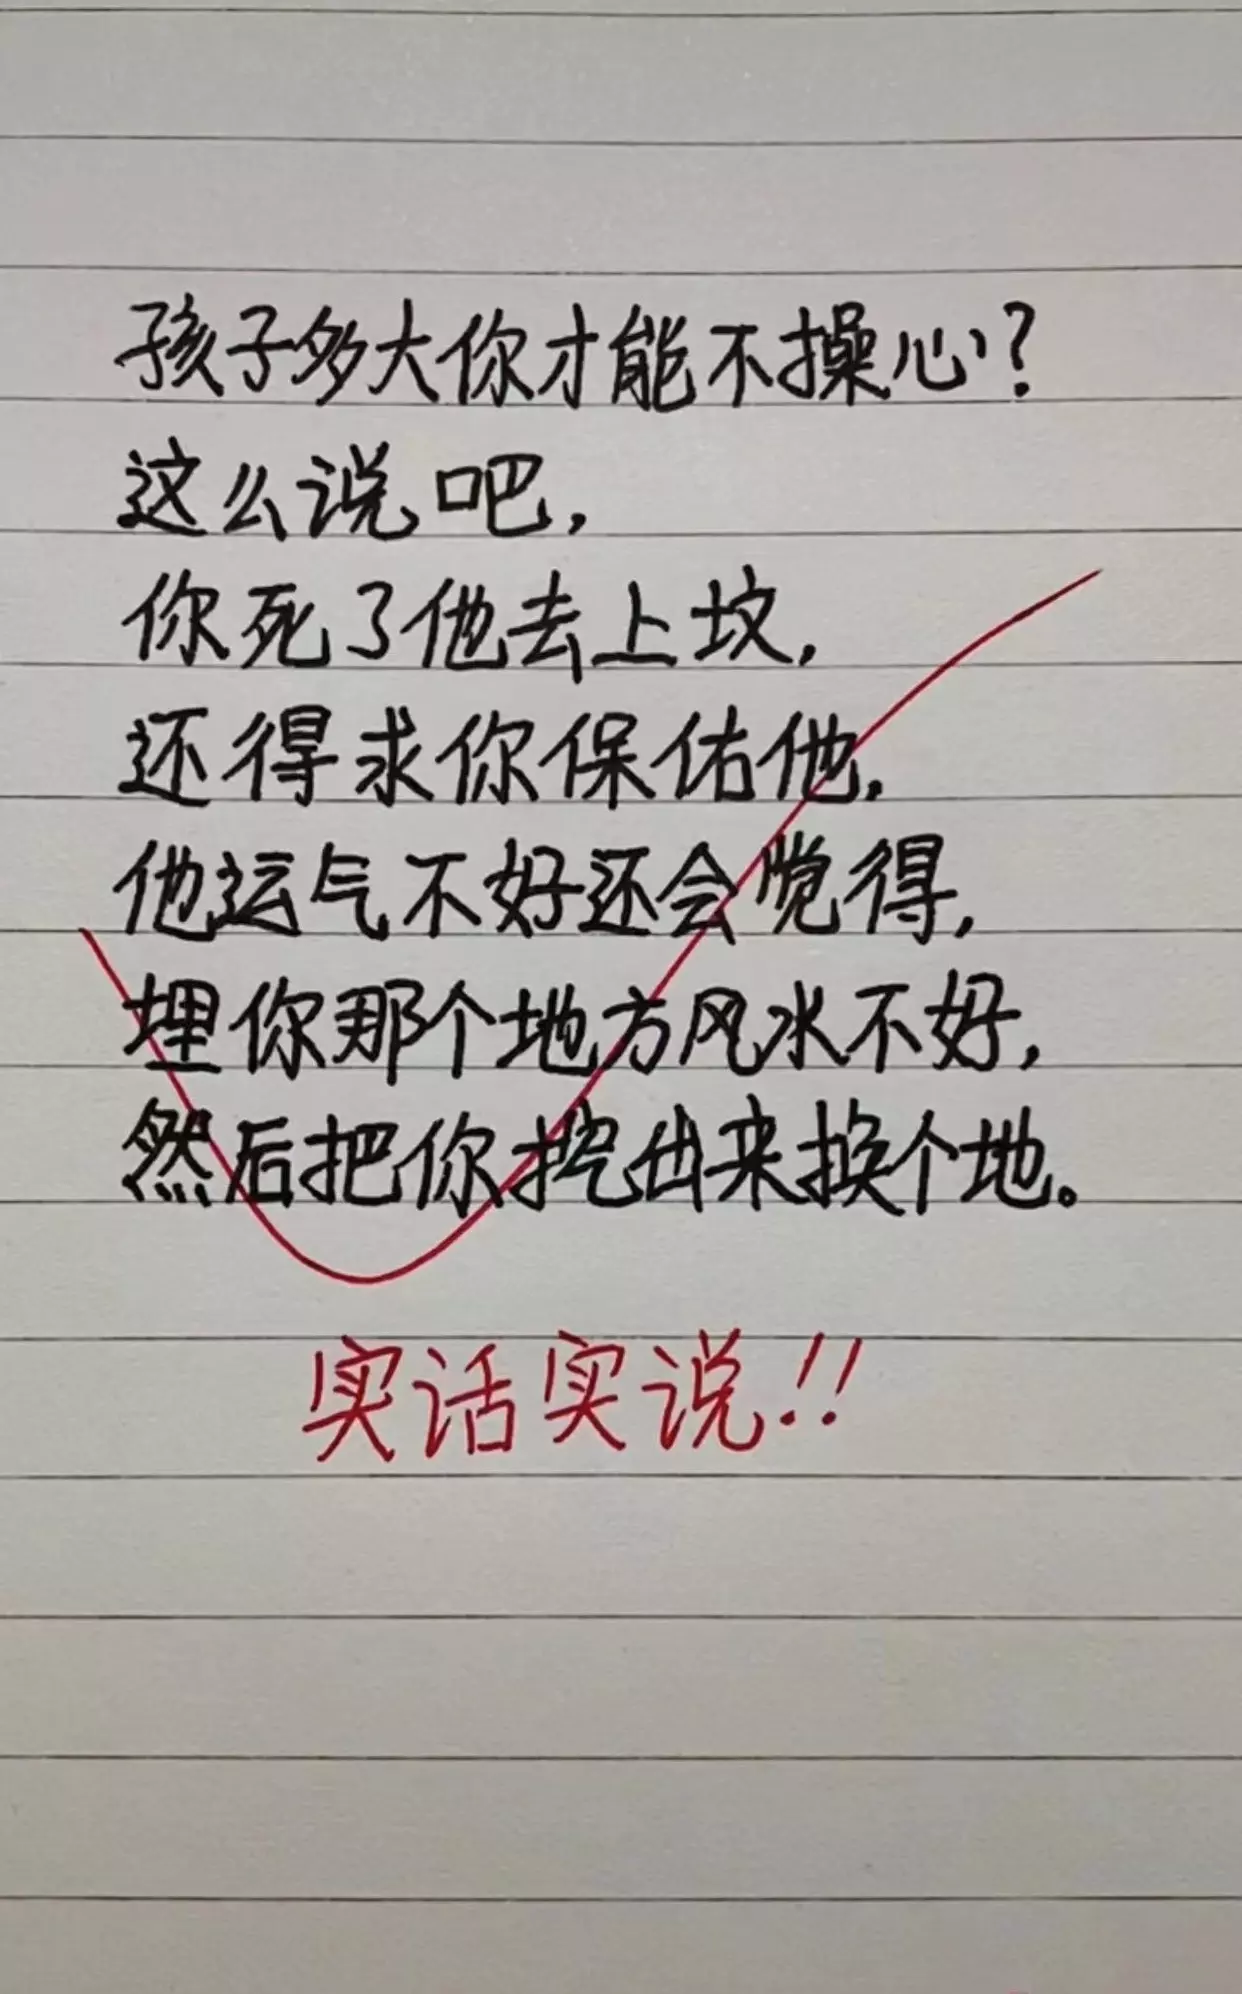 孩子多大你才能不操心?
这么说吧,
你死了他去上坟,
还得求你保佑他,
他运气不好还会觉得,
埋你那个地方风水不好,
然后把你挖出来换个地。
实话实说!!